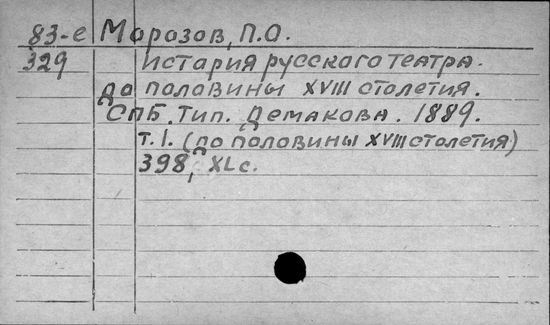 83-е Морозов, П.О.
329 История русского театра.
до половины XVIII столетия.
СПБ. Тип. Демакова. 1889.
т.1. (до половины XVIII столетия)
398, XL с.